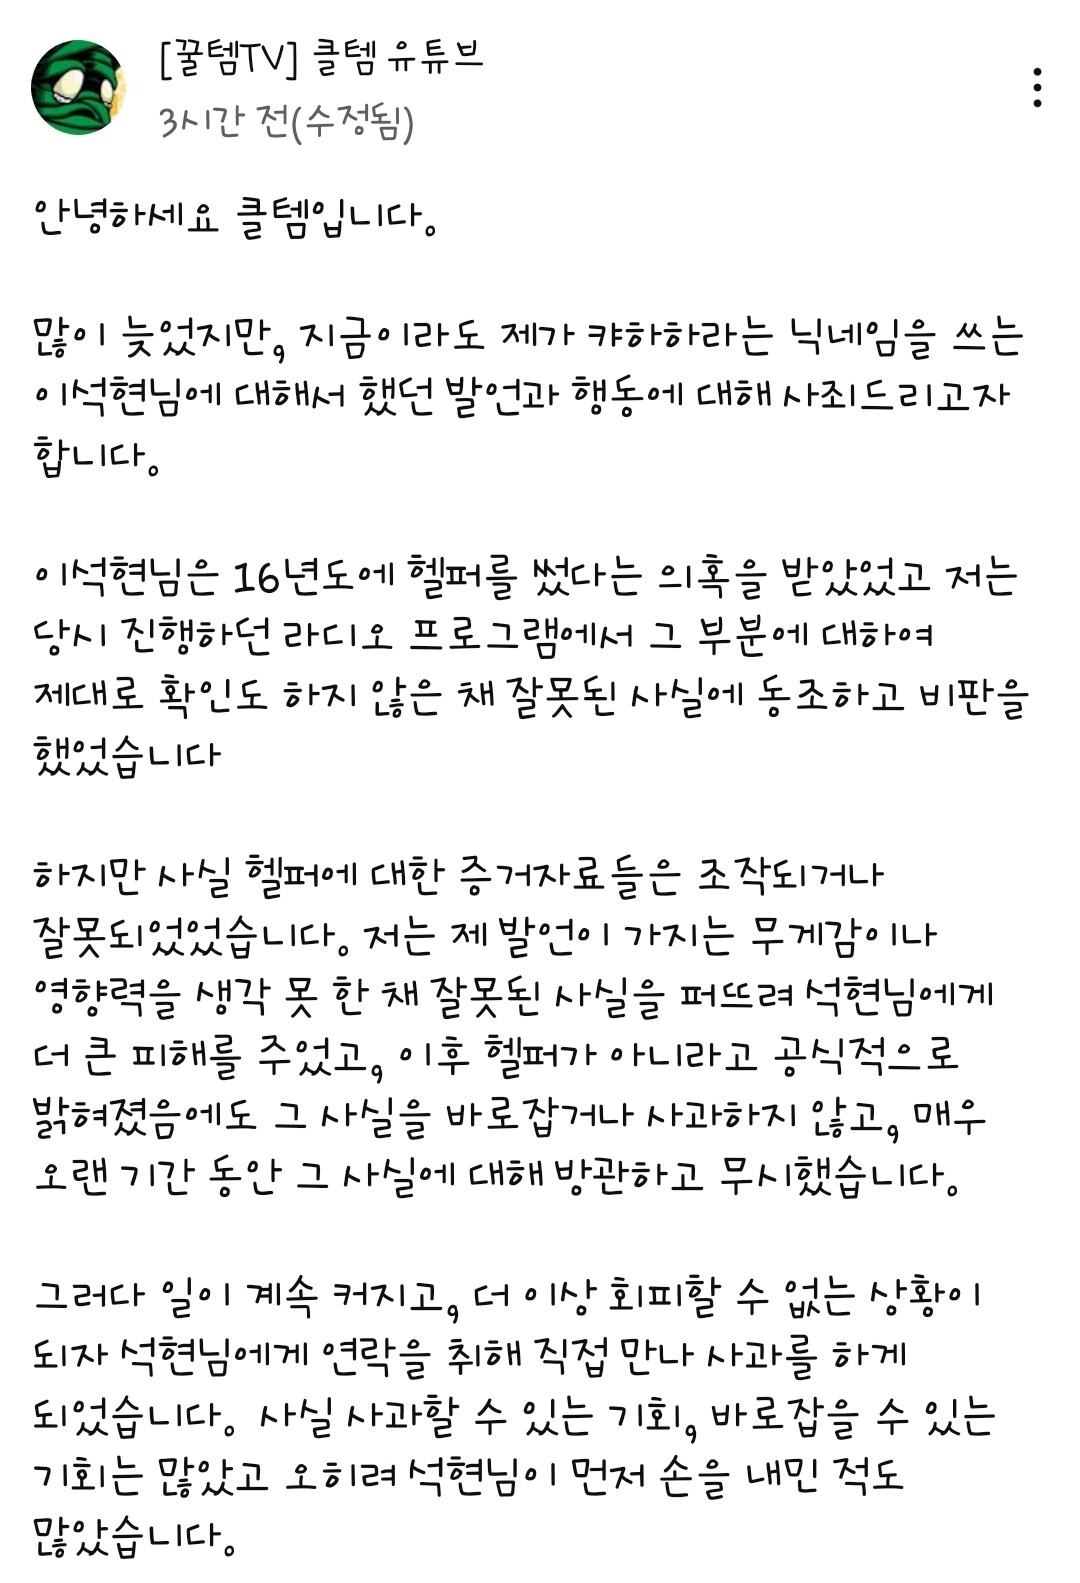 [꿀템TV] 클템 유튜브
3시간 전(수정됨)
안녕하세요 클템입니다.
많이 늦었지만, 지금이라도 제가 캬하하라는 닉네임을 쓰는
이석현님에 대해서 했던 발언과 행동에 대해 사죄드리고자
합니다.
이석현님은 16년도에 헬퍼를 썼다는 의혹을 받았었고 저는
당시 진행하던 라디오 프로그램에서 그 부분에 대하여
제대로 확인도 하지 않은 채 잘못된 사실에 동조하고 비판을
했었습니다
하지만 사실 헬퍼에 대한 증거자료들은 조작되거나
잘못되었었습니다. 저는 제 발언이 가지는 무게감이나
영향력을 생각 못 한 채 잘못된 사실을 퍼뜨려 석현님에게
더 큰 피해를 주었고, 이후 헬퍼가 아니라고 공식적으로
밝혀졌음에도 그 사실을 바로잡거나 사과하지 않고, 매우
오랜 기간 동안 그 사실에 대해 방관하고 무시했습니다.
그러다 일이 계속 커지고, 더 이상 회피할 수 없는 상황이
되자 석현님에게 연락을 취해 직접 만나 사과를 하게
되었습니다. 사실 사과할 수 있는 기회, 바로잡을 수 있는
기회는 많았고 오히려 석현님이 먼저 손을 내민 적도
많았습니다.